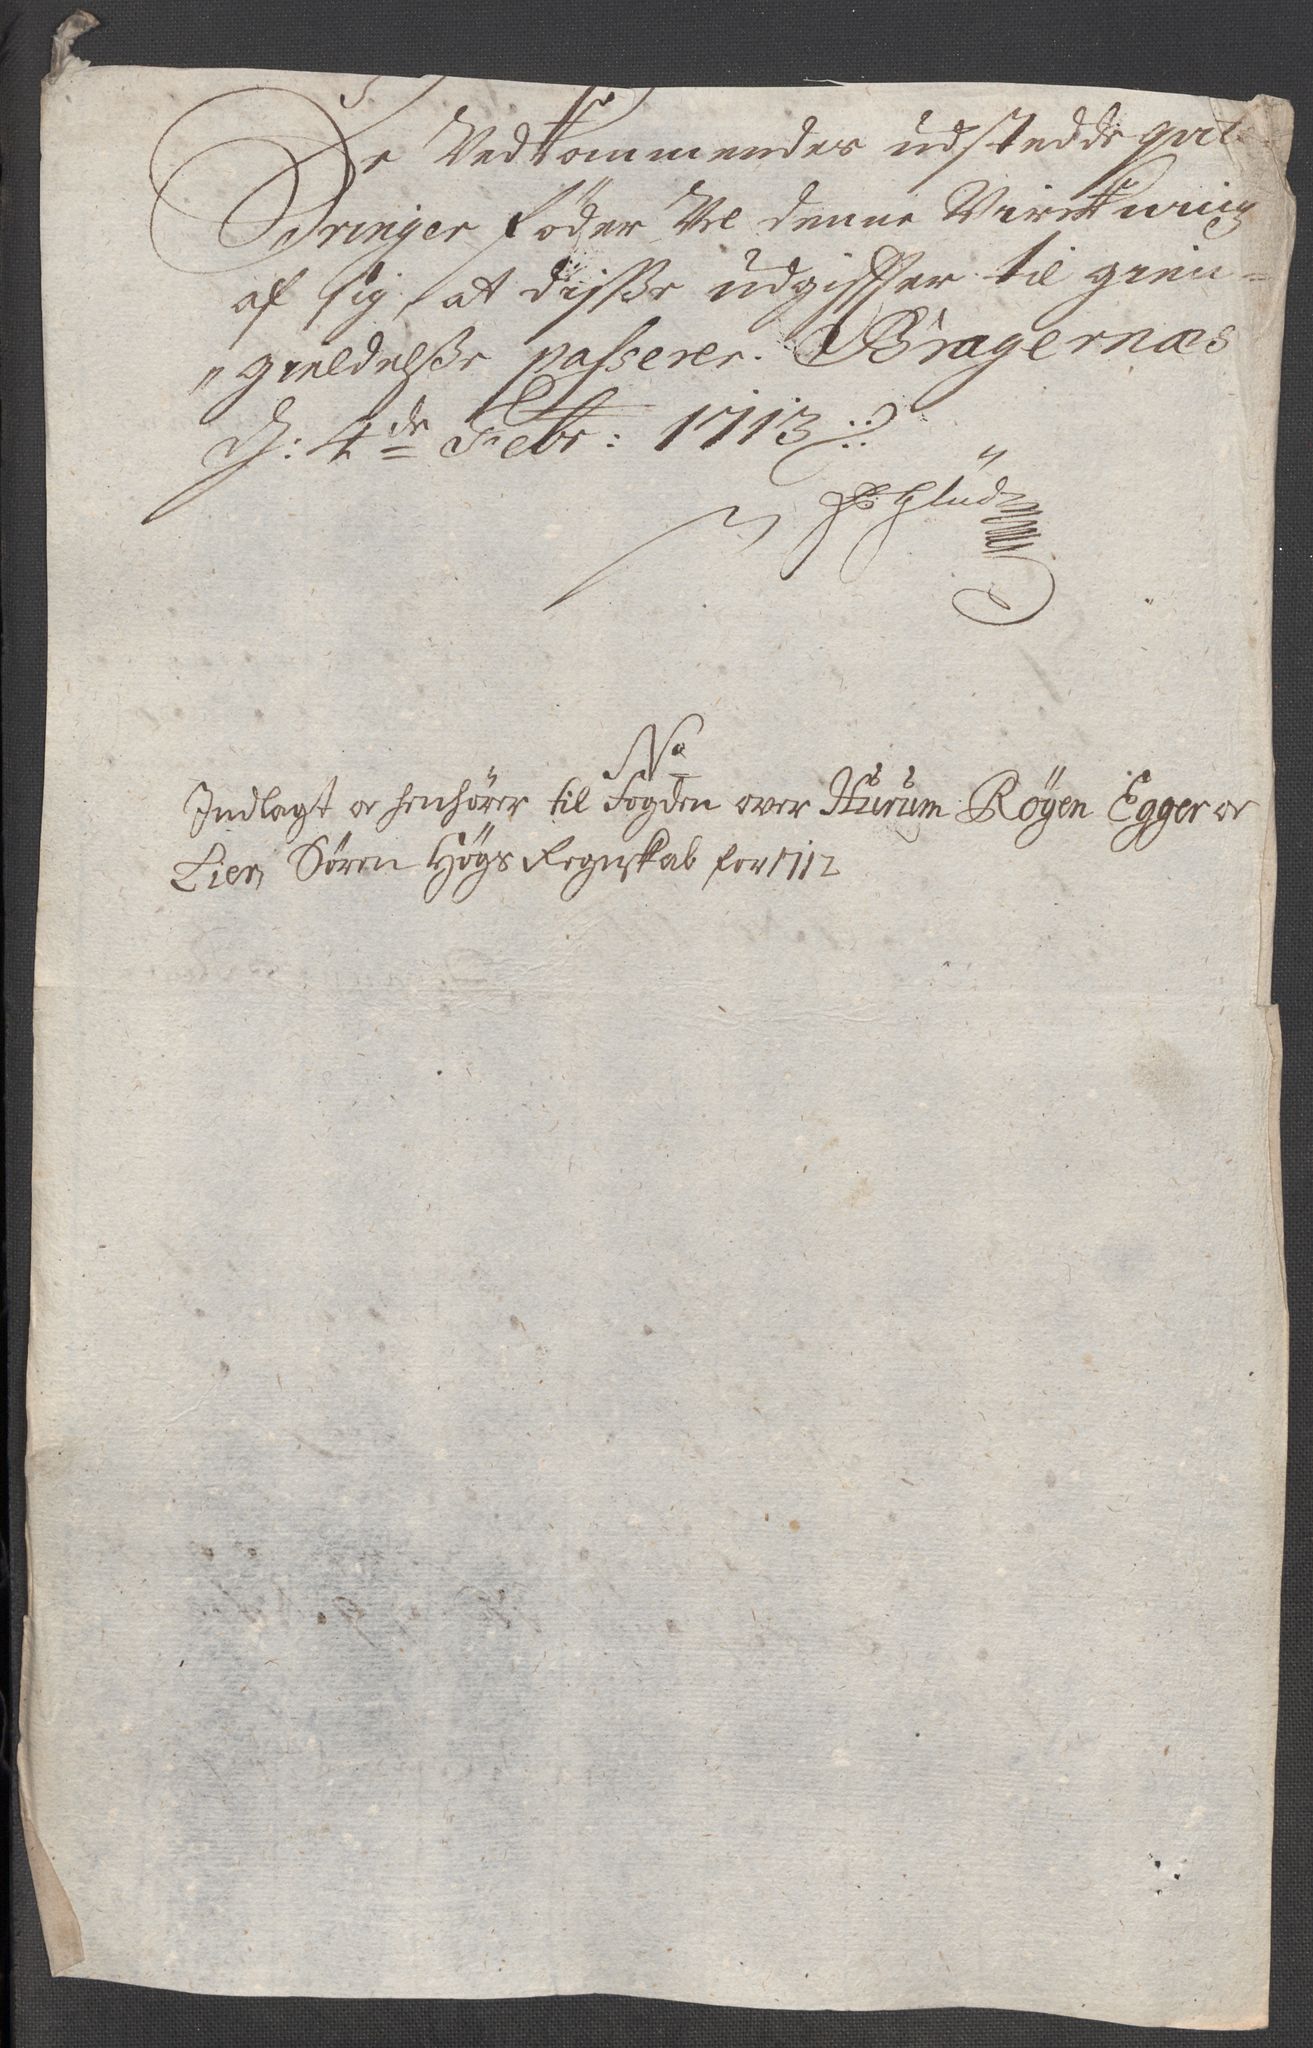 De Vedkommendes udstedde qvit-
teringer föder Vel denne Virckning
af sig, at disße udgiffter til gien-
"gieldelße passerer. Bragernæs
d: 4de Febr: 1713
Glud
No
Indlagt oc henhörer til Fogden over Hurum Röyen Egger oc
Lier, Sören Högs Regnskab for 1712